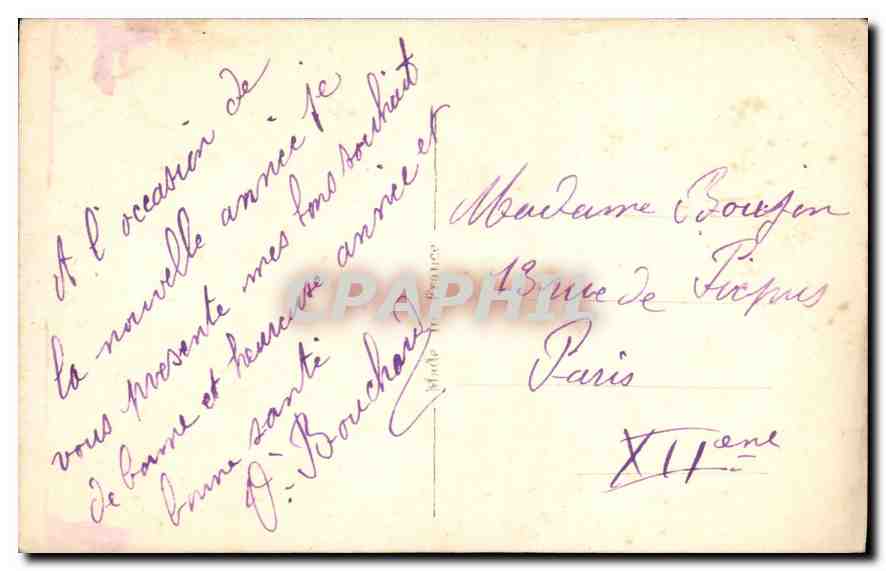 A l'occasion de
la nouvelle année je
vous presente mes bons souhait
de bonne et heureuse année et
bonne santé
D. Bouchard
Made in France
Madame Boujon
13 rue de Picpus
Paris
XIIeme
CPAPHIL